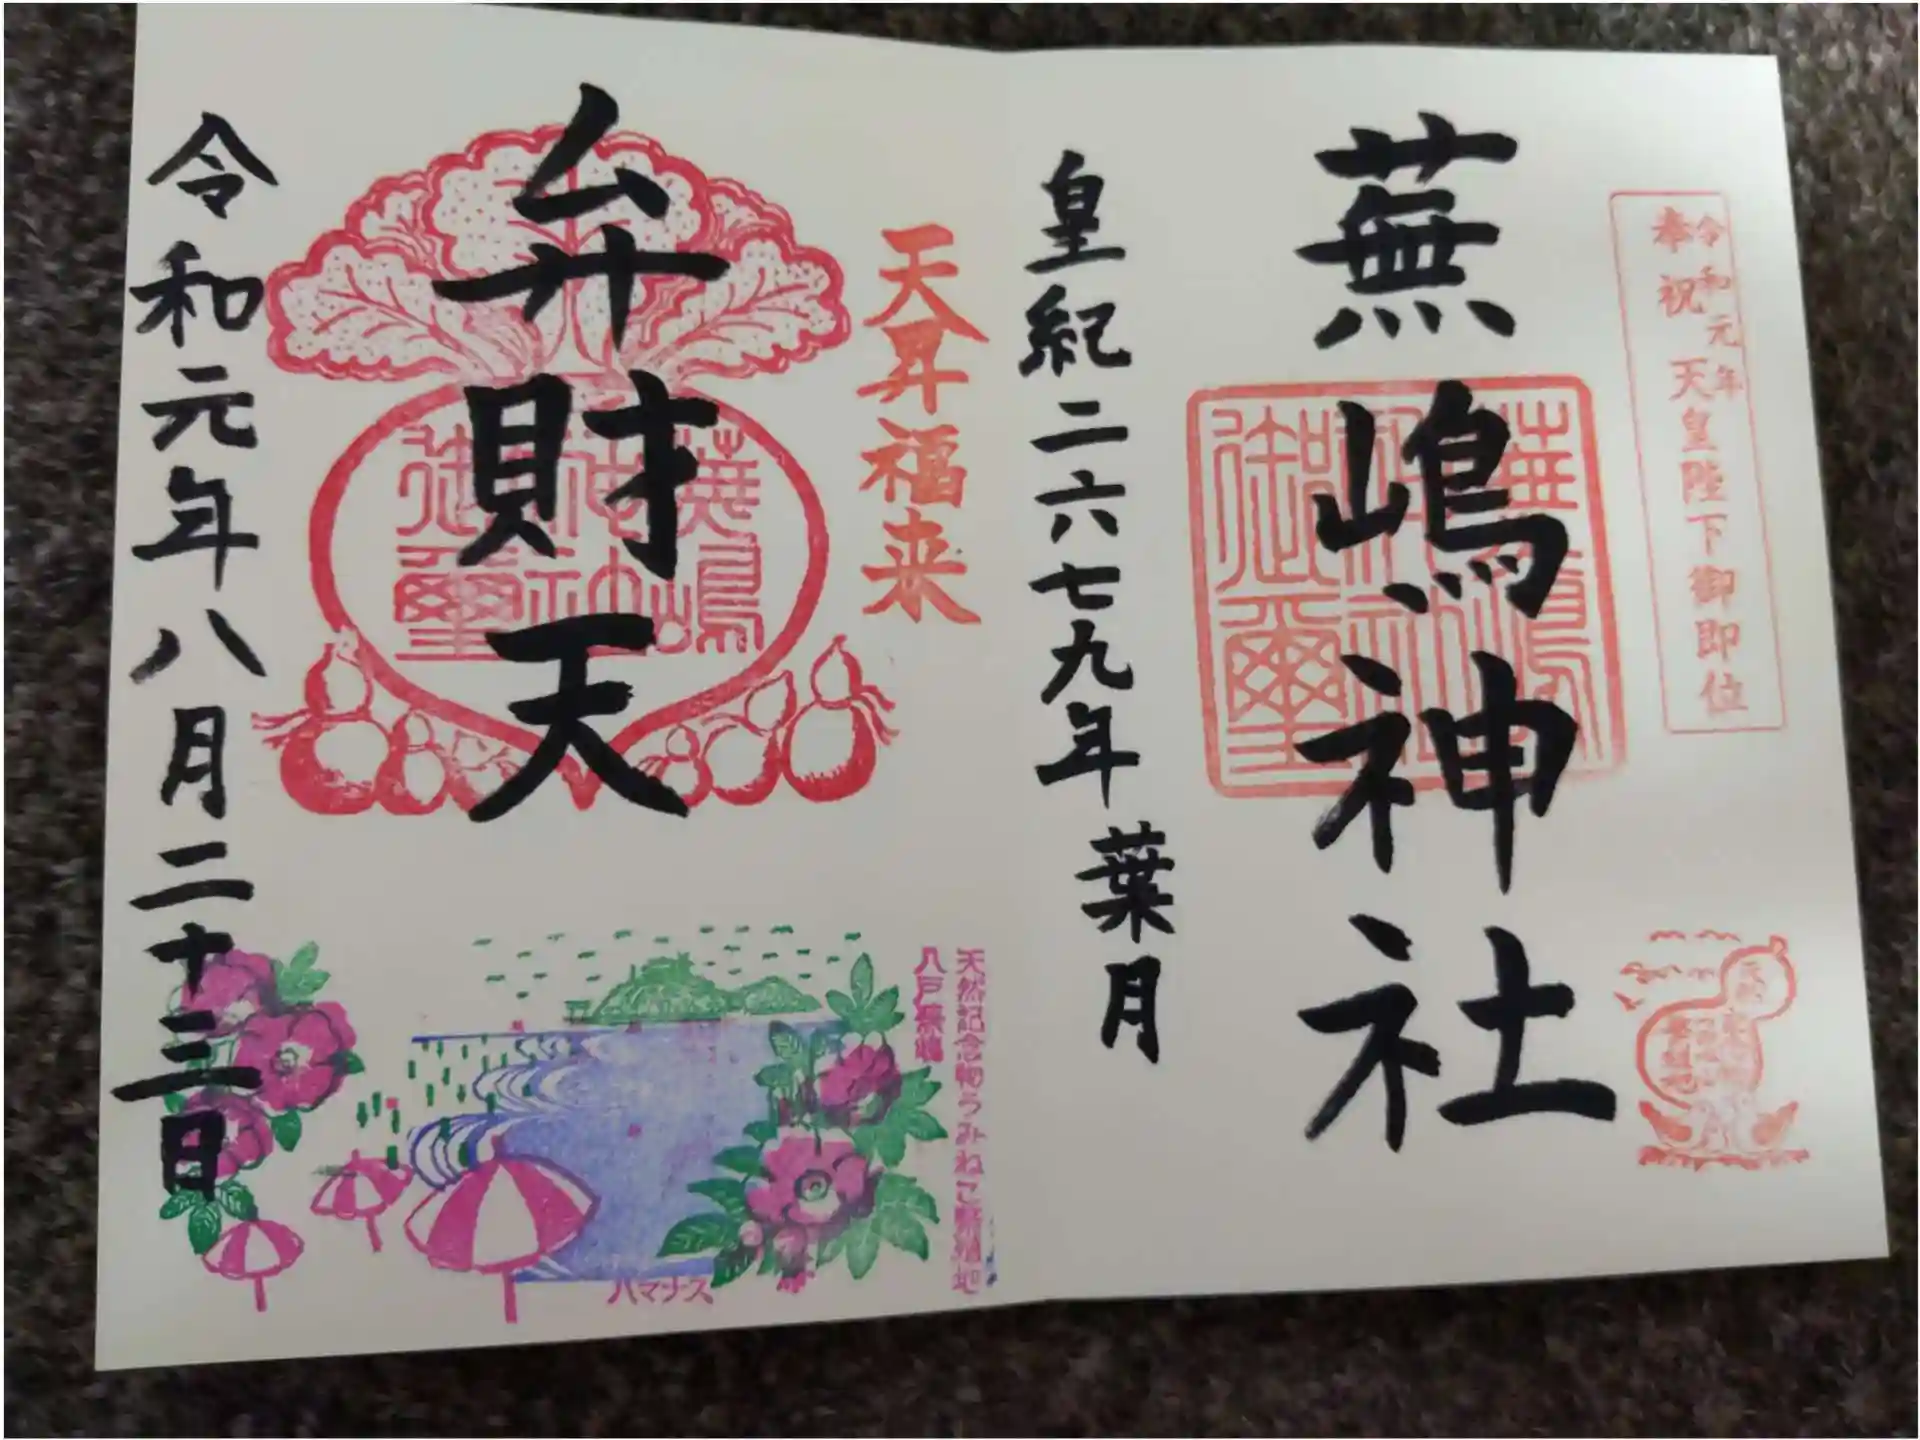 令和元年
奉祝 天皇陛下御即位
蕪嶋神社
皇紀二六七九年 葉月
天昇福来
弁財天
蕪嶋
神社
御璽
令和元年八月二十三日
天然記念物うみねこ繁殖地
八戸蕪嶋
ハマナス